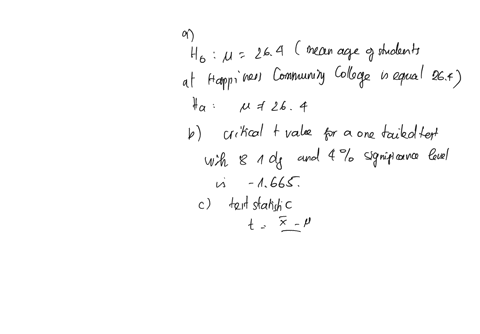 a)
H₀ : μ = 26.4 ( mean age of students
at Happiness Community College is equal 26.4)
Ha : μ ≠ 26.4
b) critical t value for a one tailed test
with 81 df and 4% significance level
is -1.665.
c) test statistic
t = x̄ - μ